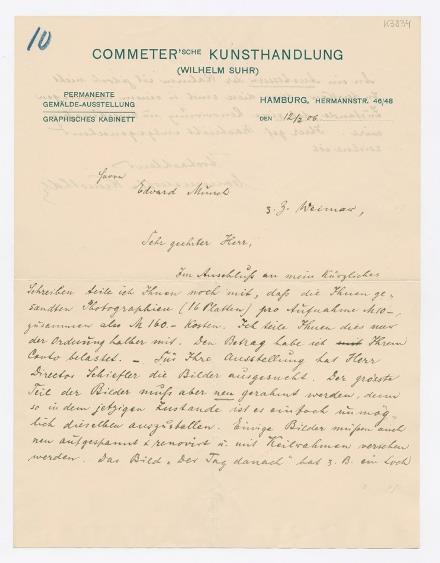 10
K3834
COMMETER'sche KUNSTHANDLUNG
(WILHELM SUHR)
PERMANENTE
GEMÄLDE-AUSSTELLUNG
GRAPHISCHES KABINETT
HAMBURG, HERMANNSTR. 46/48
DEN 12/2 06
Herrn
Edvard Munch
z. Z. Weimar,
Sehr geehrter Herr,
Im Anschluß an mein kürzliches
Schreiben teile ich Ihnen noch mit, daß die Ihnen ge-
sandten Photographien (16 Platten) pro Aufnahme M 10–,
zusammen also M 160.– kosten. Ich teile Ihnen dies nur
der Ordnung halber mit. Den Betrag habe ich Ihrem
Conto belastet. – Für Ihre Ausstellung hat Herr
Director Schiefler die Bilder ausgesucht. Der grösste
Teil der Bilder muß aber neu gerahmt werden, denn
so in dem jetzigen Zustande ist es einfach unmög-
lich dieselben auszustellen. Einige Bilder müßen auch
neu aufgespannt & renovirt u. mit Keilrahmen versehen
werden. Das Bild „Der Tag danach" hat z. B. ein Loch